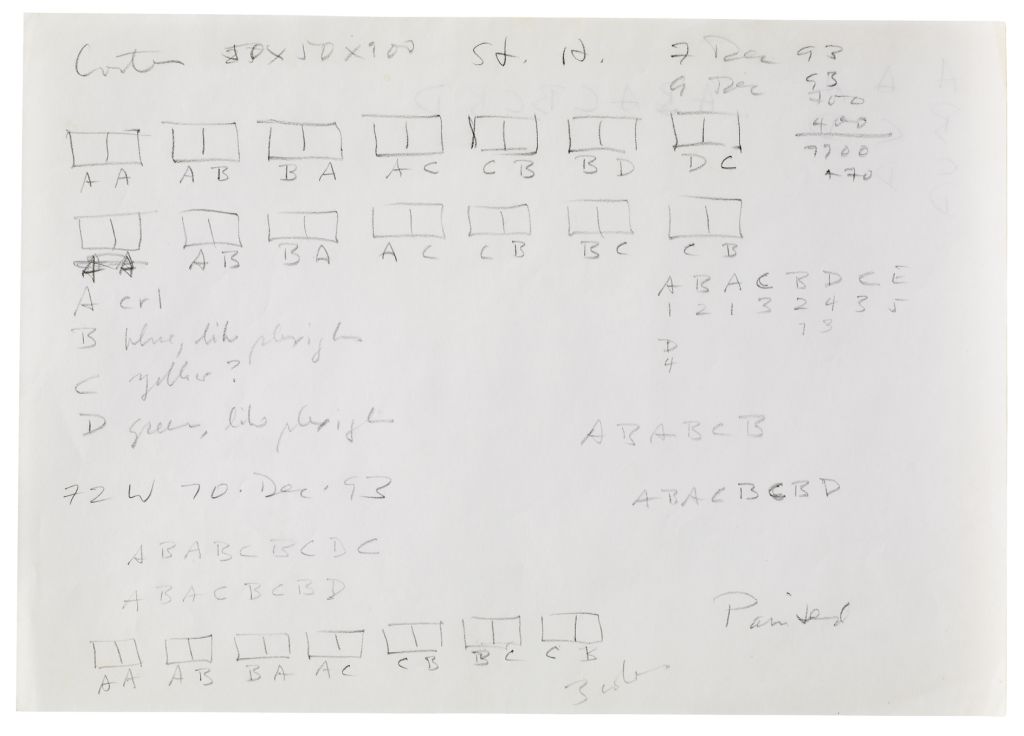 Corten 50x50x100 St. H. 7 Dec 93
9 Dec 93
700
400
1100
+70
A A A B B A A C C B B D D C
A A A B B A A C C B B C C B
A B A C B D C E
1 2 1 3 2 4 3 5
1 3
D
4
A crl
B blue, like plexiglas
C yellow?
D green, like plexiglas
A B A B C B
72 W 10. Dec. 93
A B A C B C B D
A B A B C B C D C
A B A C B C B D
Painted
A A A B B A A C C B B C C B
3 colors